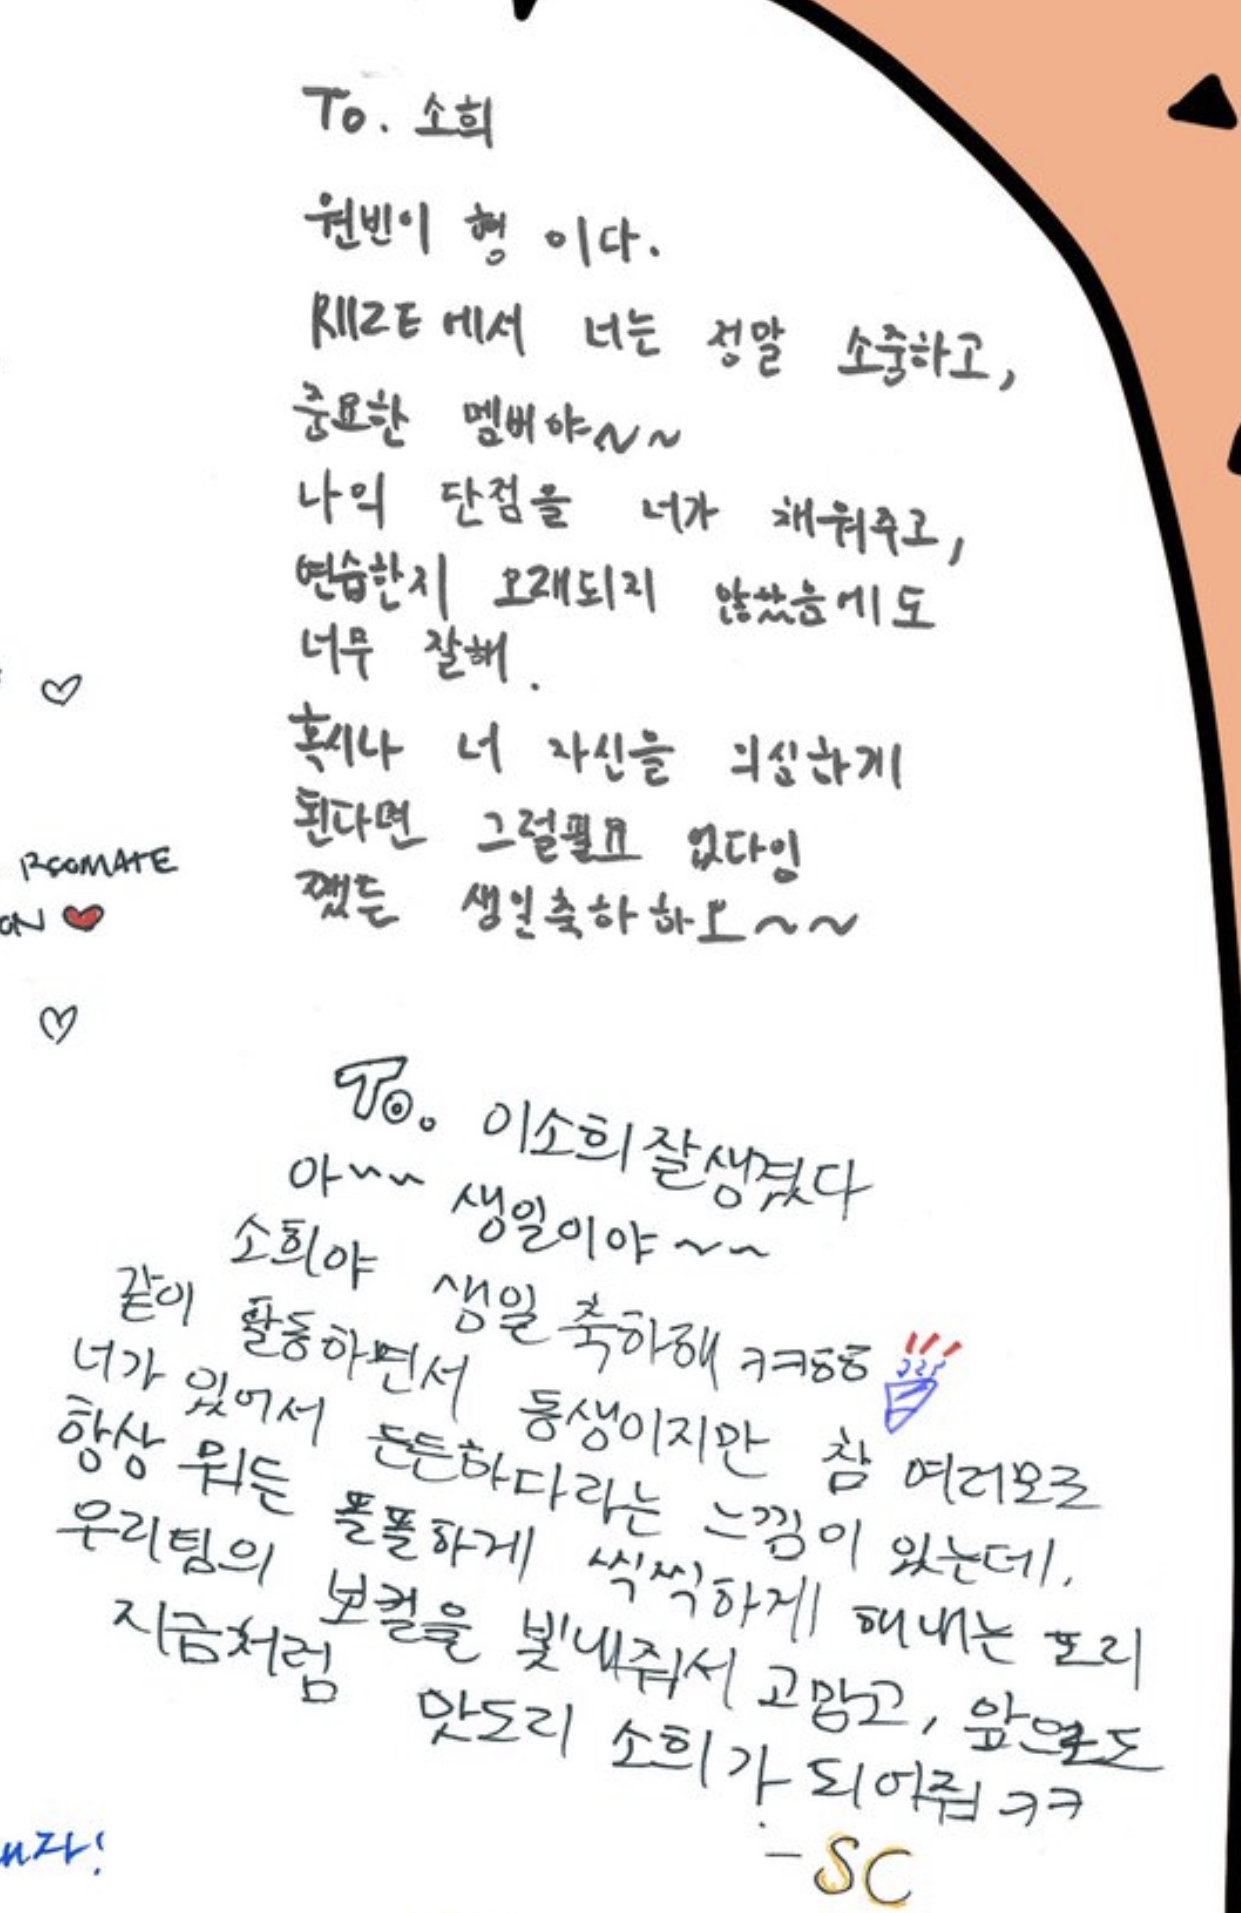 To. 소희
원빈이 형 이다.
RIIZE에서 너는 정말 소중하고,
중요한 멤버야~~
나의 단점을 너가 채워주고,
연습한지 오래되지 않았음에도
너무 잘해.
혹시나 너 자신을 의심하게
된다면 그럴필요 없다임
쨌든 생일축하하오~~
ROOMATE
ON ♥
To. 이소희잘생겼다
아~~ 생일이야~~
소희야 생일 축하해 ㅋㅋㅎㅎ
같이 활동하면서 동생이지만 참 여러모로
너가 있어서 든든하다라는 느낌이 있는데,
항상 뭐든 똘똘하게 씩씩하게 해내는 또리
우리팀의 보컬을 빛내줘서 고맙고, 앞으로도
지금처럼 맛도리 소희가 되어줘 ㅋㅋ
- SC
자!